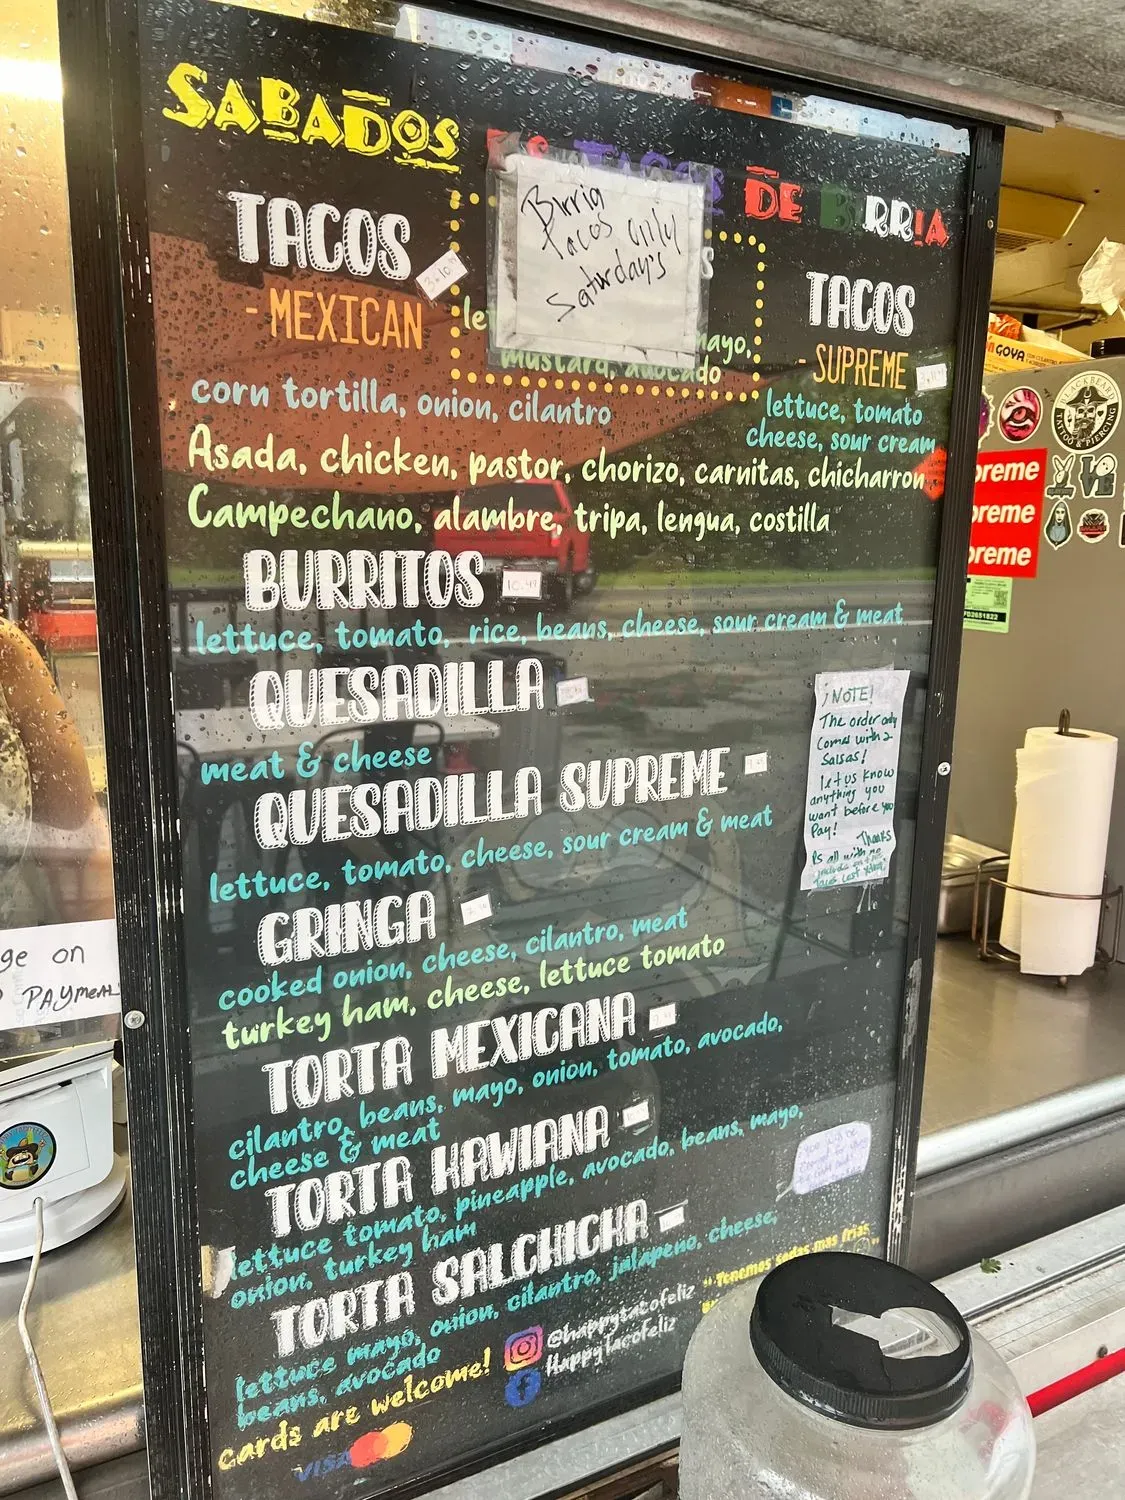 SABADOS
DE BIRRIA
Birria
Tacos only
Saturday's
TACOS
- MEXICAN
mayo,
mustard, avocado
TACOS
- SUPREME
lettuce, tomato
cheese, sour cream
corn tortilla, onion, cilantro
Asada, chicken, pastor, chorizo, carnitas, chicharron
Campechano, alambre, tripa, lengua, costilla
BURRITOS 10.49
lettuce, tomato, rice, beans, cheese, sour cream & meat
QUESADILLA
meat & cheese
QUESADILLA SUPREME
lettuce, tomato, cheese, sour cream & meat
GRINGA
cooked onion, cheese, cilantro, meat
turkey ham, cheese, lettuce tomato
TORTA MEXICANA
cilantro, beans, mayo, onion, tomato, avocado,
cheese & meat
TORTA HAWIANA
lettuce tomato, pineapple, avocado, beans, mayo,
onion, turkey ham
TORTA SALCHICHA
lettuce mayo, onion, cilantro, jalapeno, cheese,
beans, avocado
cards are welcome!
VISA
@happytacofeliz
HappyTacofeliz
"Tenemos sodas mas frias
¡NOTE!
The order only
Comes with 2
Salsas!
let us know
anything you
want before you
Pay!
Thanks
ge on
PAYMENT
GOYA
BLACKBEARD
TATTOO & PIERCING
preme
preme
preme
LOVE